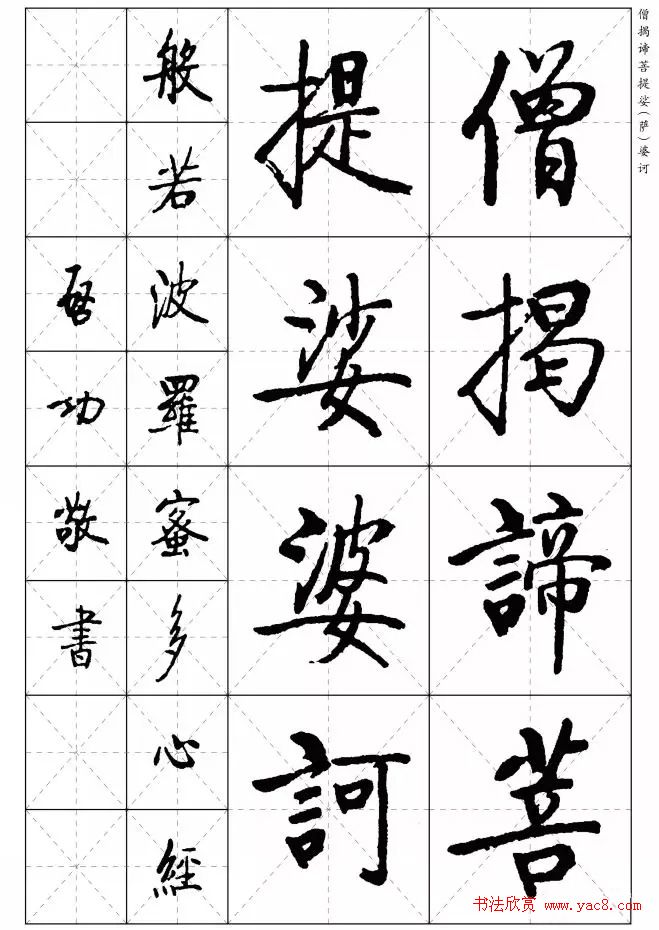 僧揭谛菩提娑（萨）婆诃
僧揭諦菩
提娑婆訶
般若波羅蜜多心經
啓功敬書
书法欣赏 www.yac8.com